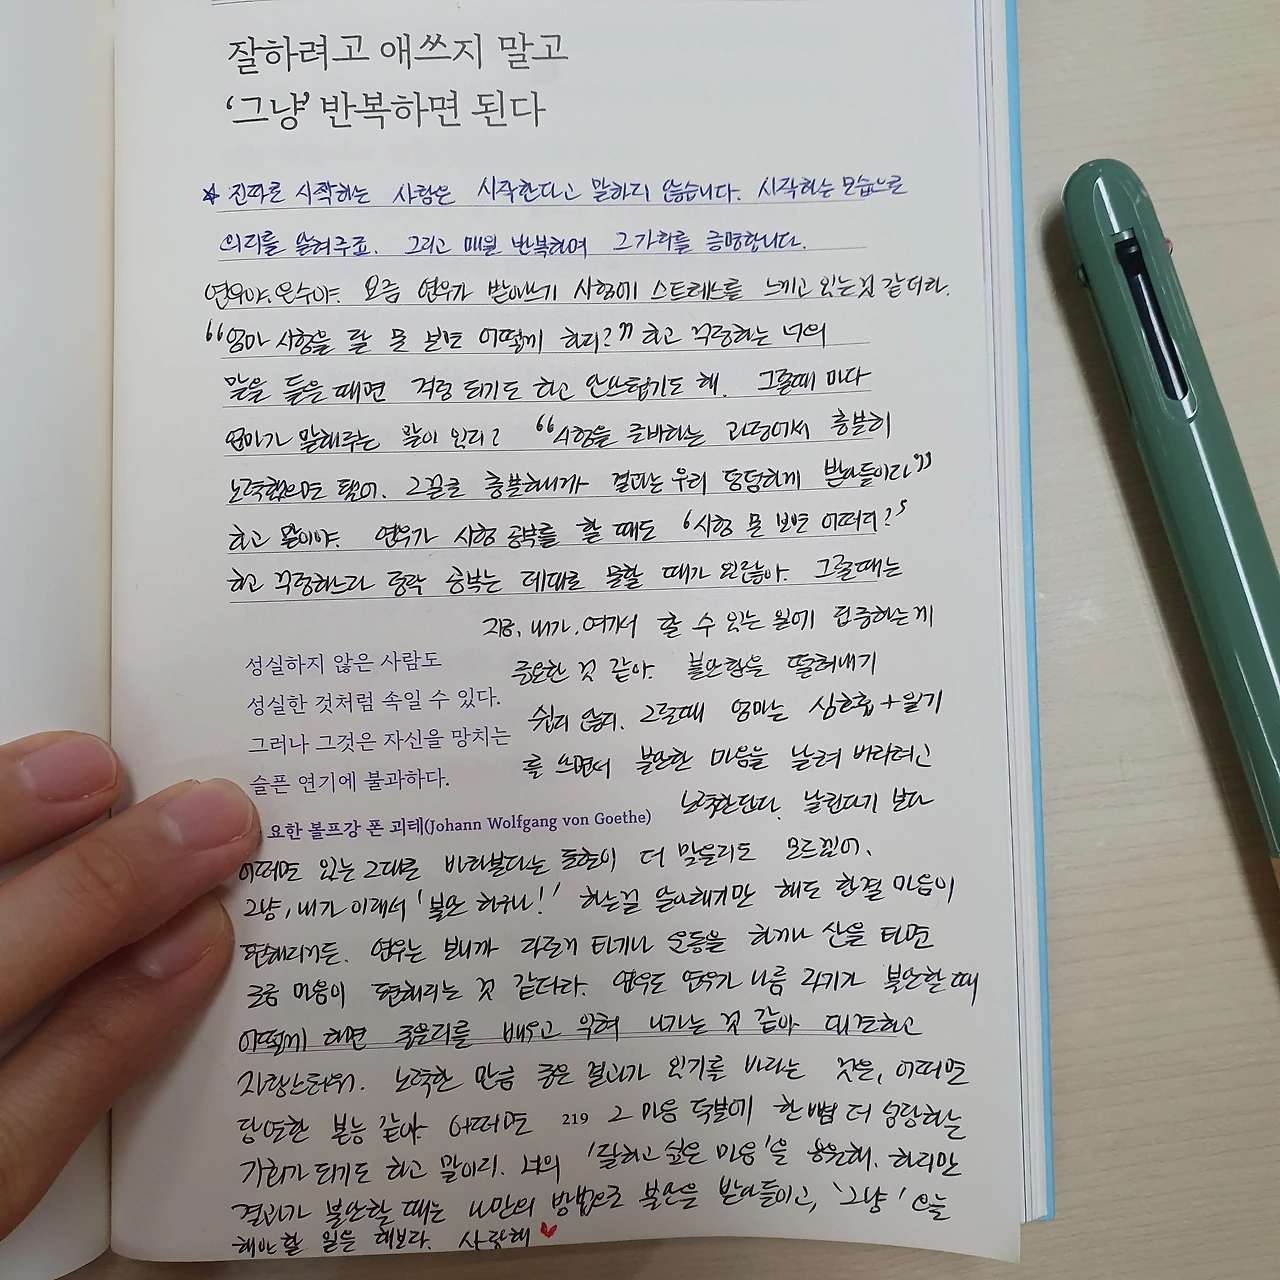 잘하려고 애쓰지 말고
‘그냥’ 반복하면 된다
☆ 진짜로 시작하는 사람은 시작한다고 말하지 않습니다. 시작하는 모습으로
의지를 알려주죠. 그리고 매일 반복하여 그 가치를 증명합니다.
연우야. 은수야. 요즘 연우가 받아쓰기 시험에 스트레스를 느끼고 있는 것 같더라.
“엄마 시험을 잘 못 보면 어떻게 하지?” 하고 걱정하는 너의
말을 들을 때면 걱정 되기도 하고 안쓰럽기도 해. 그럴때 마다
엄마가 말해주는 말이 있지? “시험을 준비하는 과정에서 충분히
노력했으면 됐어. 그걸로 충분하니까 결과는 우리 덤덤하게 받아들이자”
하고 말이야. 연우가 시험 공부를 할 때도 ‘시험 못 보면 어쩌지?’
하고 걱정하느라 정작 공부는 제대로 못할 때가 있잖아. 그럴때는
지금, 내가, 여기서 할 수 있는 일에 집중하는게
중요한 것 같아. 불안함을 떨쳐내기
쉽지 않지. 그럴때 엄마는 심호흡+일기
를 쓰면서 불안한 마음을 날려 버리려고
노력한단다. 날린다기 보다
성실하지 않은 사람도
성실한 것처럼 속일 수 있다.
그러나 그것은 자신을 망치는
슬픈 연기에 불과하다.
요한 볼프강 폰 괴테(Johann Wolfgang von Goethe)
어쩌면 있는 그대로 바라본다는 표현이 더 맞을지도 모르겠어.
그냥, 내가 이래서 ‘불안 하구나!’ 하는걸 알아채기만 해도 한결 마음이
편해지거든. 연우는 보니까 자전거 타거나 운동을 하거나 산을 타면
조금 마음이 편해지는 것 같더라. 연우도 연우가 나름 자기가 불안할 때
어떻게 하면 좋을지를 배우고 익혀 나가는 것 같아 대견하고
자랑스러워. 노력한 만큼 좋은 결과가 있기를 바라는 것은, 어쩌면
당연한 본능 같아. 어쩌면 그 마음 덕분에 한뼘 더 성장하는
219
기회가 되기도 하고 말이지. 너의 ‘잘하고 싶은 마음’을 응원해. 하지만
결과가 불안할 때는 너만의 방법으로 불안을 받아들이고, ‘그냥’ 오늘
해야 할 일을 해보자. 사랑해 ♥